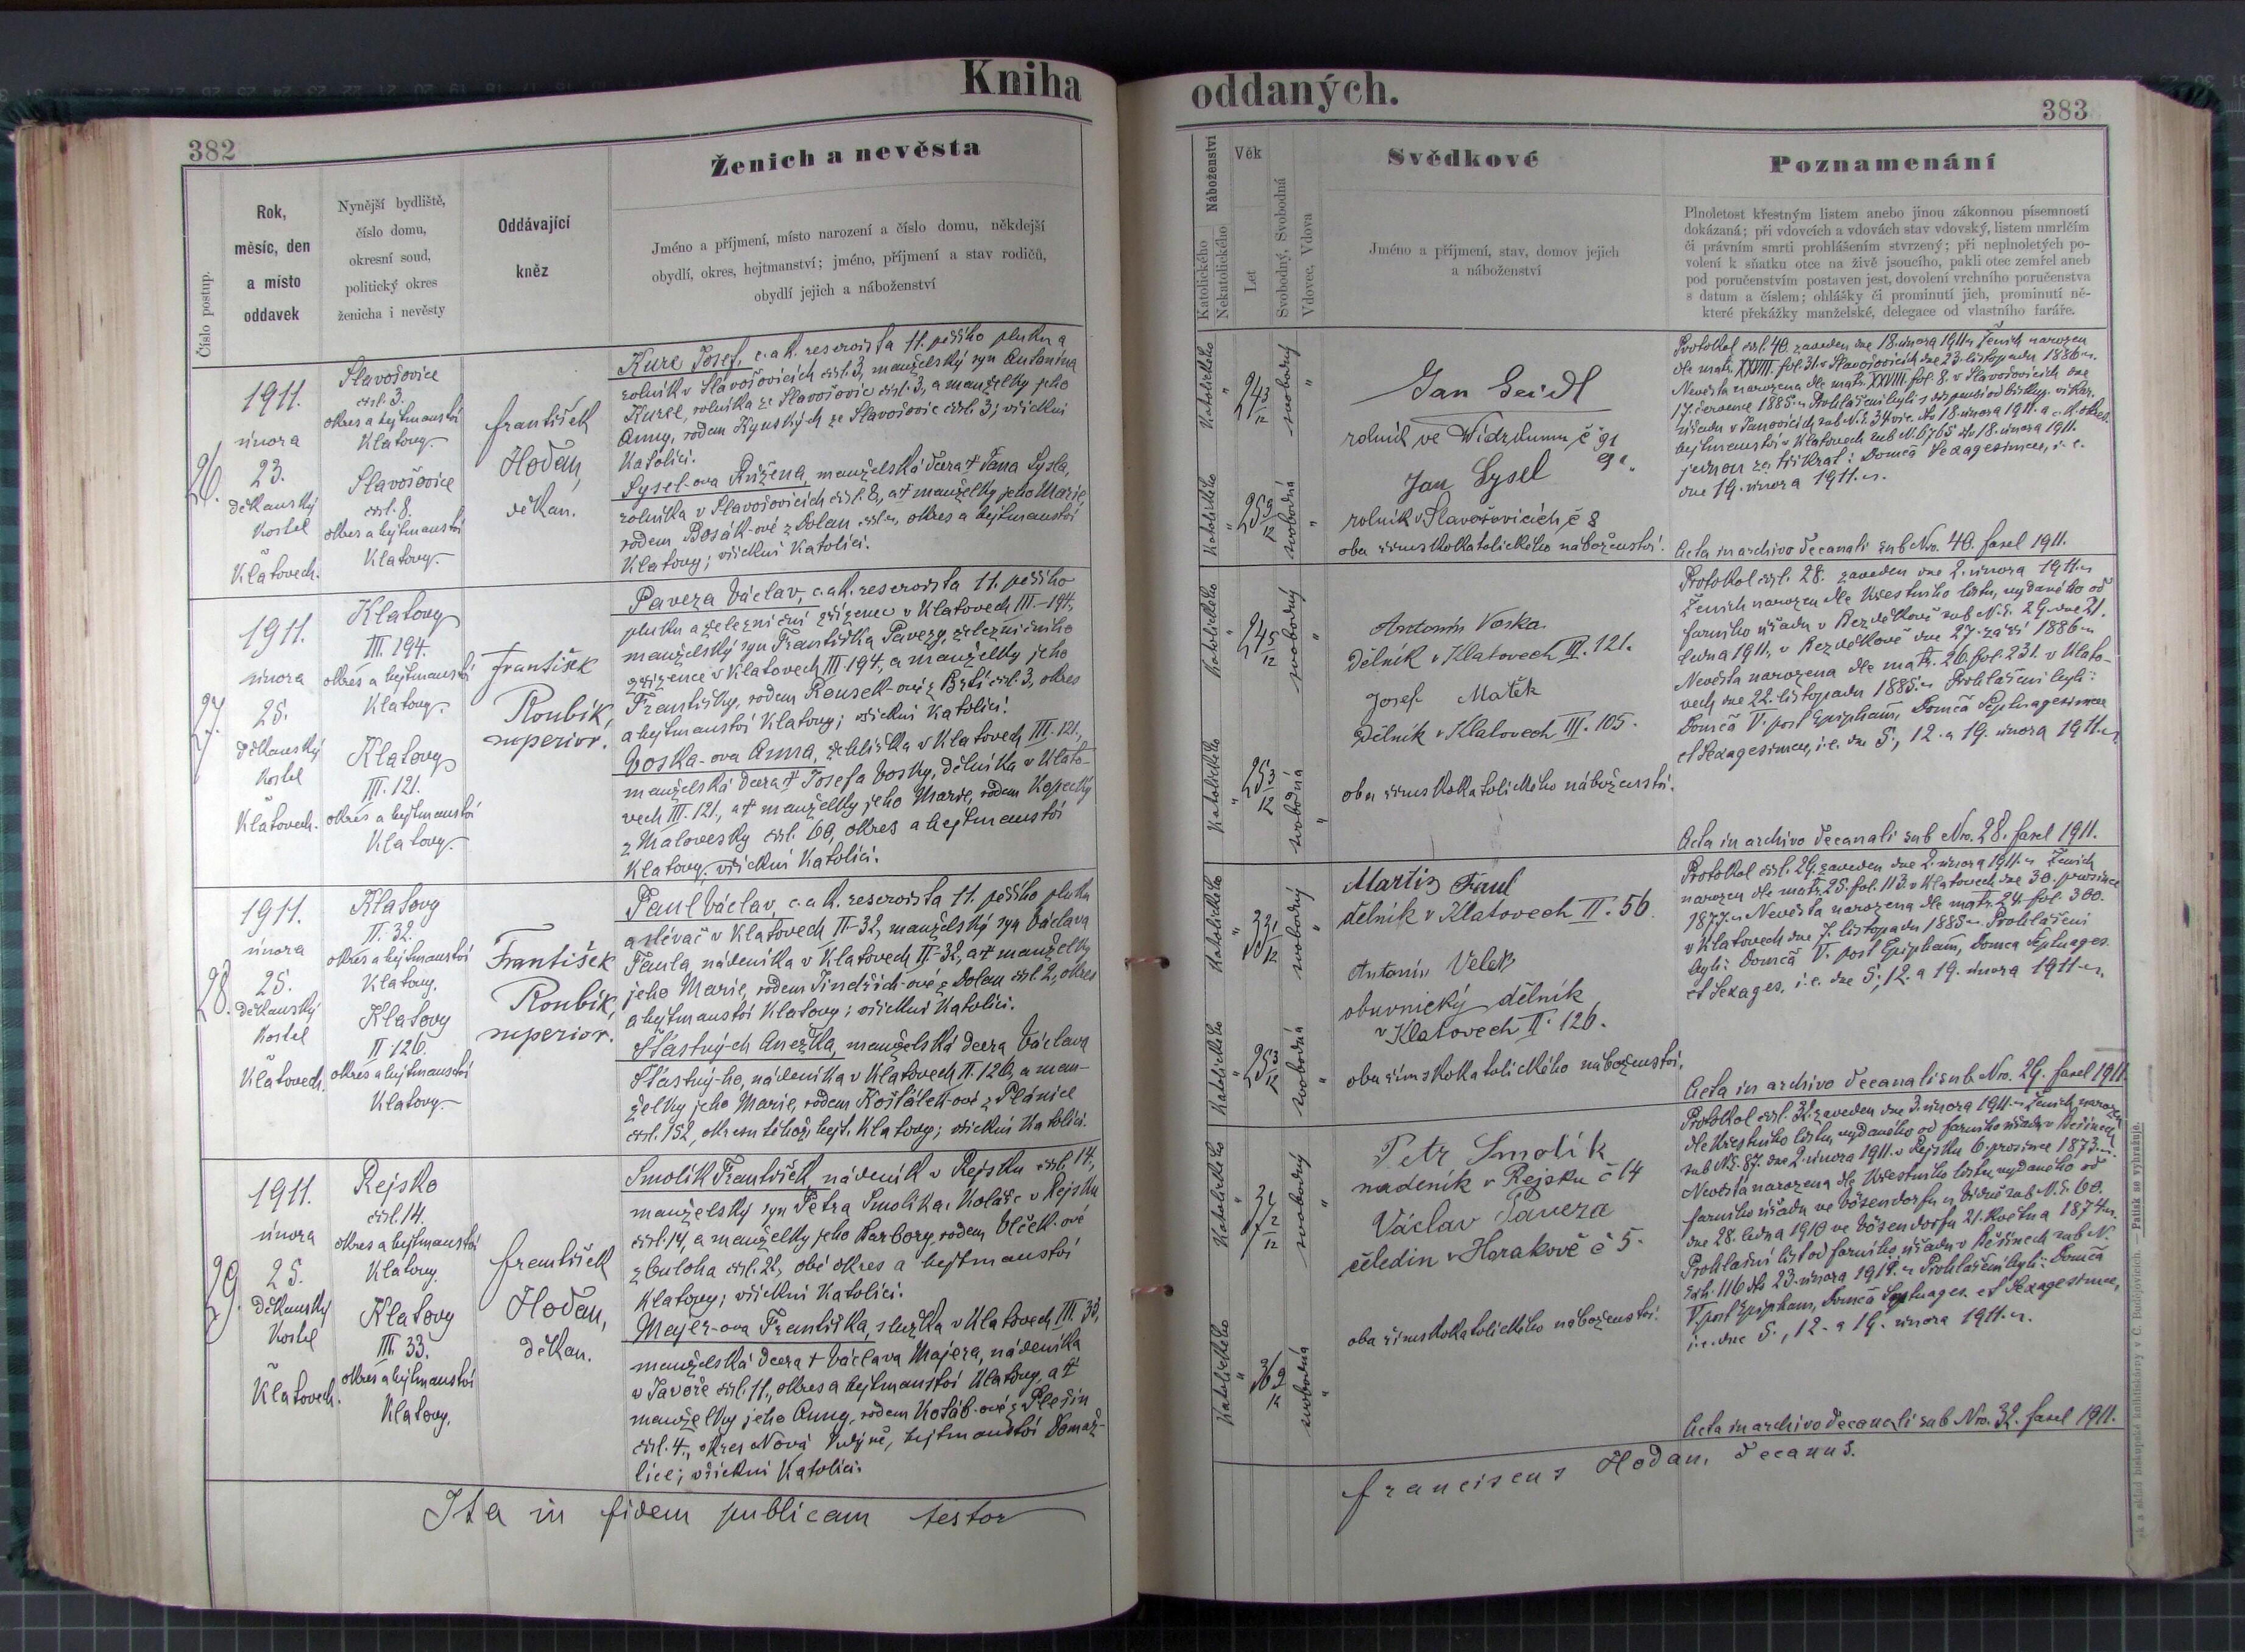 Kniha oddaných.
382
383
Číslo postup.
Rok,
měsíc, den
a místo
oddavek
Nynější bydliště,
číslo domu,
okresní soud,
politický okres
ženicha i nevěsty
Oddávající
kněz
Ženich a nevěsta
Jméno a příjmení, místo narození a číslo domu, někdejší
obydlí, okres, hejtmanství; jméno, příjmení a stav rodičů,
obydlí jejich a náboženství
Náboženství
Katolického
Nekatolického
Věk
Let
Svobodný, Svobodná
Vdovec, Vdova
Svědkové
Jméno a příjmení, stav, domov jejich
a náboženství
Poznamenání
Plnoletost křestným listem anebo jinou zákonnou písemností
dokázaná; při vdovcích a vdovách stav vdovský, listem úmrlčím
či právním smrti prohlášením stvrzený; při neplnoletých po-
volení k sňatku otce na živě jsoucího, pakli otec zemřel aneb
pod poručenstvím postaven jest, dovolení vrchního poručenstva
s datum a číslem; ohlášky či prominutí jich, prominutí ně-
které překážky manželské, delegace od vlastního faráře.
26.
1911.
února
23.
děkanský
kostel
v
Klatovech.
Slavošovice
čísl. 3.
okres a hejtmanství
Klatovy.
Slavošovice
čísl. 8.
okres a hejtmanství
Klatovy.
František
Hoďan,
děkan.
Kurc Josef, c. a k. reservista 11. pěšího pluku a
rolník v Slavošovicích čísl. 3, manželský syn Antonína
Kurce, rolníka ze Slavošovic čísl. 3, a manželky jeho
Anny, rodem Rynských ze Slavošovic čísl. 3; všickni
katolíci.
Lysel-ova Růžena, manželská dcera † Jana Lysla,
rolníka v Slavošovicích čísl. 8, a † manželky jeho Marie,
rodem Bosák-ové z Dolan čísl. , okres a hejtmanství
Klatovy; všickni katolíci.
katolického
24 3/12
svobodný
katolického
25 9/12
svobodná
Jan Seidl
rolník ve Widzdunu č 91
Jan Lysel
rolník v Slavošovicích č 8
oba římskokatolického náboženství.
Protokol čísl. 40. zaveden dne 18. února 1911. Ženich narozen
dle matr. XXVIII. fol. 31. v Slavošovicích dne 23. listopadu 1886.
Nevěsta narozena dle matr. XXVIII. fol. 8. v Slavošovicích dne
17. července 1885. Prohlášeni byli s dispensí od biskup. vikar.
úřadu v Janovicích sub N. E. 34 vic. dto 18. února 1911. a c. k. okres.
hejtmanství v Klatovech sub N. 6765 dto 18. února 1911.
jednou za třikrát: Domca Sexagesimae, i. e.
dne 19. února 1911.
Acta in archivo decanali sub Nro. 40. fascl 1911.
27.
1911.
února
25.
děkanský
kostel
v
Klatovech.
Klatovy
III. 194.
okres a hejtmanství
Klatovy.
Klatovy
III. 121.
okres a hejtmanství
Klatovy.
František
Roubík,
superior.
Paveza Václav, c. a k. reservista 11. pěšího
pluku a železniční zřízenec v Klatovech III.–194,
manželský syn Františka Pavezy, železničního
zřízence v Klatovech III 194, a manželky jeho
Františky, rodem Rousek-ové z Brtí čísl. 3, okres
a hejtmanství Klatovy; všickni katolíci.
Voska-ova Anna, žehlířka v Klatovech III. 121.,
manželská dcera † Josefa Vosky, dělníka v Klato-
vech III. 121., a † manželky jeho Marie, rodem Kopecký
z Malovesky čísl. 60, okres a hejtmanství
Klatovy, všickni katolíci.
katolického
24 5/12
svobodný
katolického
25 3/12
svobodná
Antonín Voska
Dělník v Klatovech III. 121.
Josef Mašek
Dělník v Klatovech III. 105.
oba římskokatolického náboženství.
Protokol čísl. 28. zaveden dne 2. února 1911.
Ženich narozen dle křestního listu, vydaného od
farního úřadu v Bezděkově sub N. E. 29. dne 21.
ledna 1911, v Bezděkově dne 27. září 1886.
Nevěsta narozena dle matr. 26. fol. 231. v Klato-
vech dne 22. listopadu 1885. Prohlášeni byli:
Domca V. post Epiphan, Domca Septuagesimae
et Sexagesimae, i. e. dne 5., 12. a 19. února 1911.
Acta in archivo decanali sub Nro. 28. fascl 1911.
28.
1911.
února
25.
děkanský
kostel
v
Klatovech.
Klatovy
II. 32.
okres a hejtmanství
Klatovy.
Klatovy
II 126.
okres a hejtmanství
Klatovy.
František
Roubík,
superior.
Faul Václav, c. a k. reservista 11. pěšího pluku
a slévač v Klatovech II–32, manželský syn Václava
Faula, nádeníka v Klatovech II–32, a † manželky
jeho Marie, rodem Jindřich-ové z Dolan čísl. 2, okres
a hejtmanství Klatovy; všickni katolíci.
Šťastných Anežka, manželská dcera Václava
Šťastný-ho, nádeníka v Klatovech II. 126, a man-
želky jeho Marie, rodem Košťálek-ové z Plánice
čísl. 152, okresu téhož, hejt. Klatovy; všickni katolíci.
katolického
33 1/12
svobodný
katolického
25 3/12
svobodná
Martin Faul
dělník v Klatovech II. 56.
Antonín Velek
obuvnický dělník
v Klatovech II. 126.
oba římskokatolického náboženství.
Protokol čísl. 29. zaveden dne 2. února 1911. Ženich
narozen dle matr. 25. fol. 113. v Klatovech dne 30. prosince
1877. Nevěsta narozena dle matr. 24. fol. 360.
v Klatovech dne 7. listopadu 1885. Prohlášeni
byli: Domca V. post Epiphan, Domca Septuages.
et Sexages, i. e. dne 5., 12. a 19. února 1911.
Acta in archivo decanali sub Nro. 29. fascl 1911
29.
1911.
února
25.
Děkanský
kostel
v
Klatovech.
Rejsko
čísl. 14.
okres a hejtmanství
Klatovy.
Klatovy
III. 33.
okres a hejtmanství
Klatovy.
František
Hoďan,
děkan.
Smolík František, nádeník v Rejsku čísl. 14,
manželský syn Petra Smolíka, koláře v Rejsku
čísl. 14, a manželky jeho Barbory, rodem Vlček-ové
z čísl. 22, obé okres a hejtmanství
Klatovy; všickni katolíci.
Majer-ova Františka, služka v Klatovech III. 33,
manželská dcera † Václava Majera, nádeníka
v Javoře čísl. 11., okres a hejtmanství Klatovy, a †
manželky jeho Anny, rodem Koťáb-ové z Plešin
čísl. 4., okres Nová , hejtmanství Domaž-
lice; všickni katolíci.
katolického
37 2/12
svobodný
katolického
36 9/12
svobodná
Petr Smolík
nadeník v Rejsku č 14
Václav Paveza
čeledin v Horakově č 5.
oba římskokatolického náboženství.
Protokol čísl. 32. zaveden dne 3. února 1911. Ženich narozen
dle křestního listu, vydaného od farního úřadu v Běšinech
sub N. E. 87. dne 2. února 1911. v Rejsku 6. prosince 1873.
Nevěsta narozena dle křestního listu, vydaného od
farního úřadu ve Vösendorfu u Vídně sub N. E. 60.
dne 28. ledna 1910 ve Vösendorfu 21. května 1874.
Prohlašní list od farního úřadu v Běšinech sub N.
Exh. 116 dto 23. února 1911. Prohlášeni byli: Domca
V. post Epiphan, Domca Septuages. et Sexagesimae,
i. e. dne 5., 12. a 19. února 1911.
Acta in archivo decanali sub Nro. 32. fascl 1911.
Ita in fidem publicam testor
Franciscus Hoďan, Decanus.
sk a sklad biskupské knihtiskárny v Č. Budějovicích. — Patisk se vyhražuje.